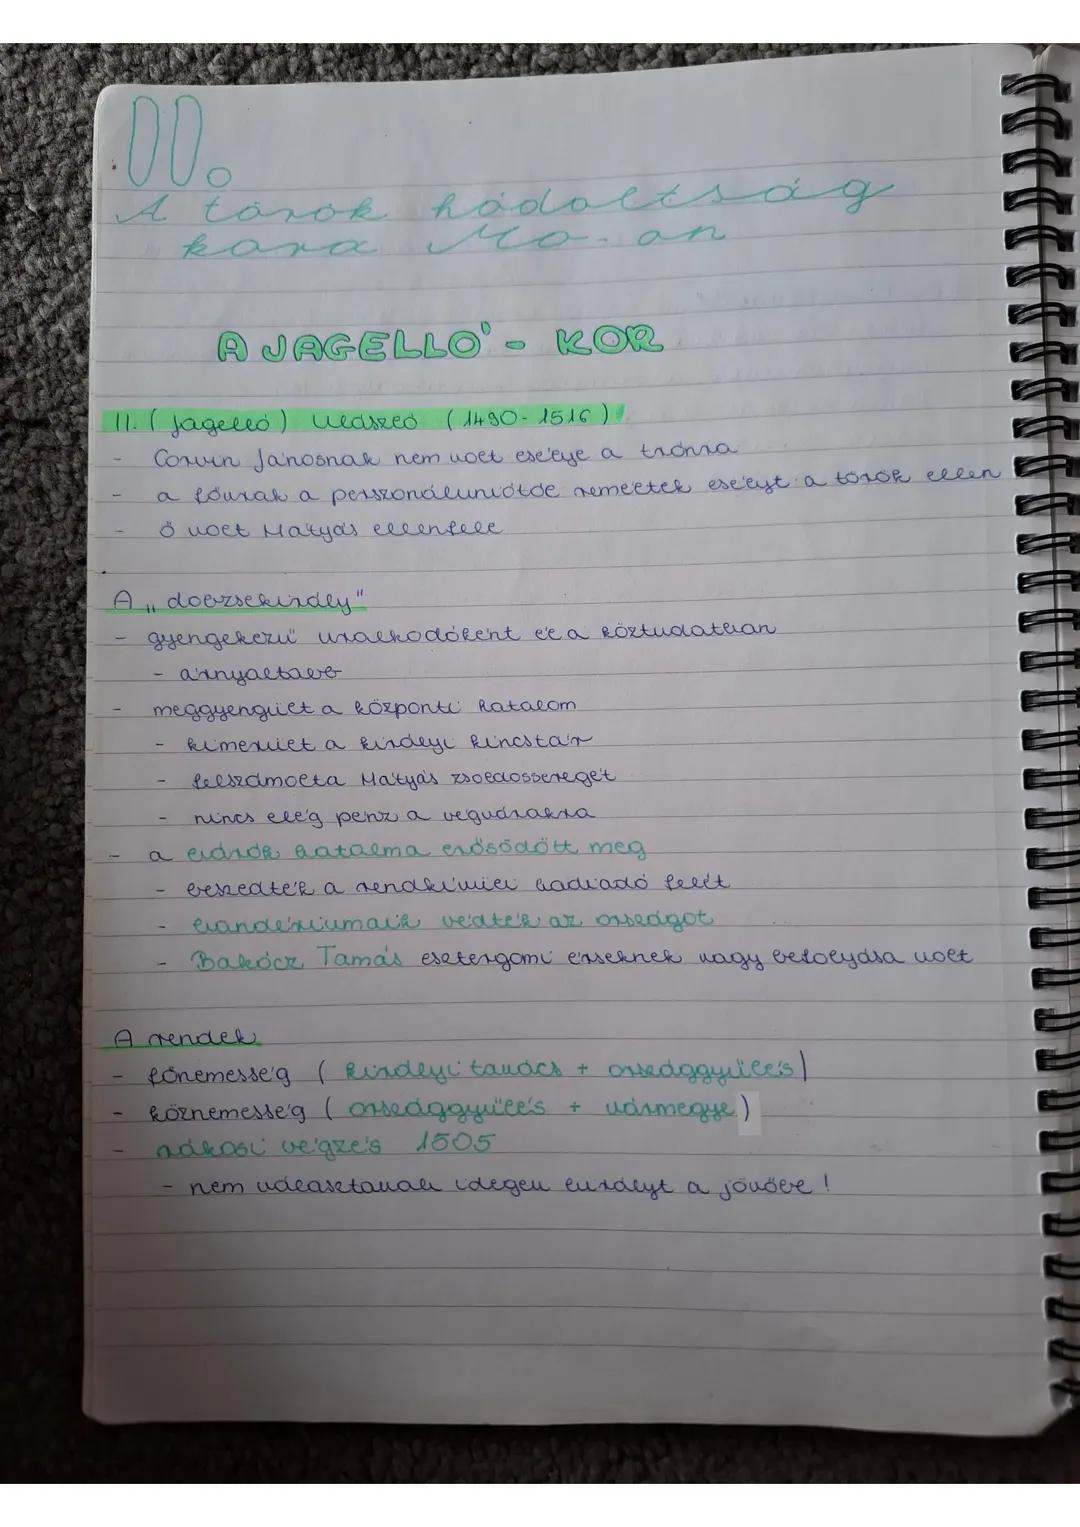 II.
A török hódoltság
kora Mo-on
A JAGELLÓ - KOR
II. (Jagelló) Ulászló (1490-1516)
- Corvin Jánosnak nem volt esélye a trónra
- a főurak a perszonáluniótól reméltek esélyt a török ellen
- ő volt Mátyás ellenfele
A „dobzsekirály"
- gyengekezű uralkodóként él a köztudatban
- árnyaltabb
- meggyengült a központi hatalom
- kimerült a királyi kincstár
- felszámolta Mátyás zsoldosseregét
- nincs elég pénz a végvárakra
- a bárók hatalma erősödött meg
- beszedték a rendkívüli hadiadó felét
- bandériumaik védték az országot
- Bakócz Tamás esztergomi érseknek nagy befolyása volt
A rendek
- főnemesség (királyi tanács + országgyűlés)
- köznemesség (országgyűlés + vármegye)
- rákosi végzés 1505
- nem választanak idegen királyt a jövőbe!